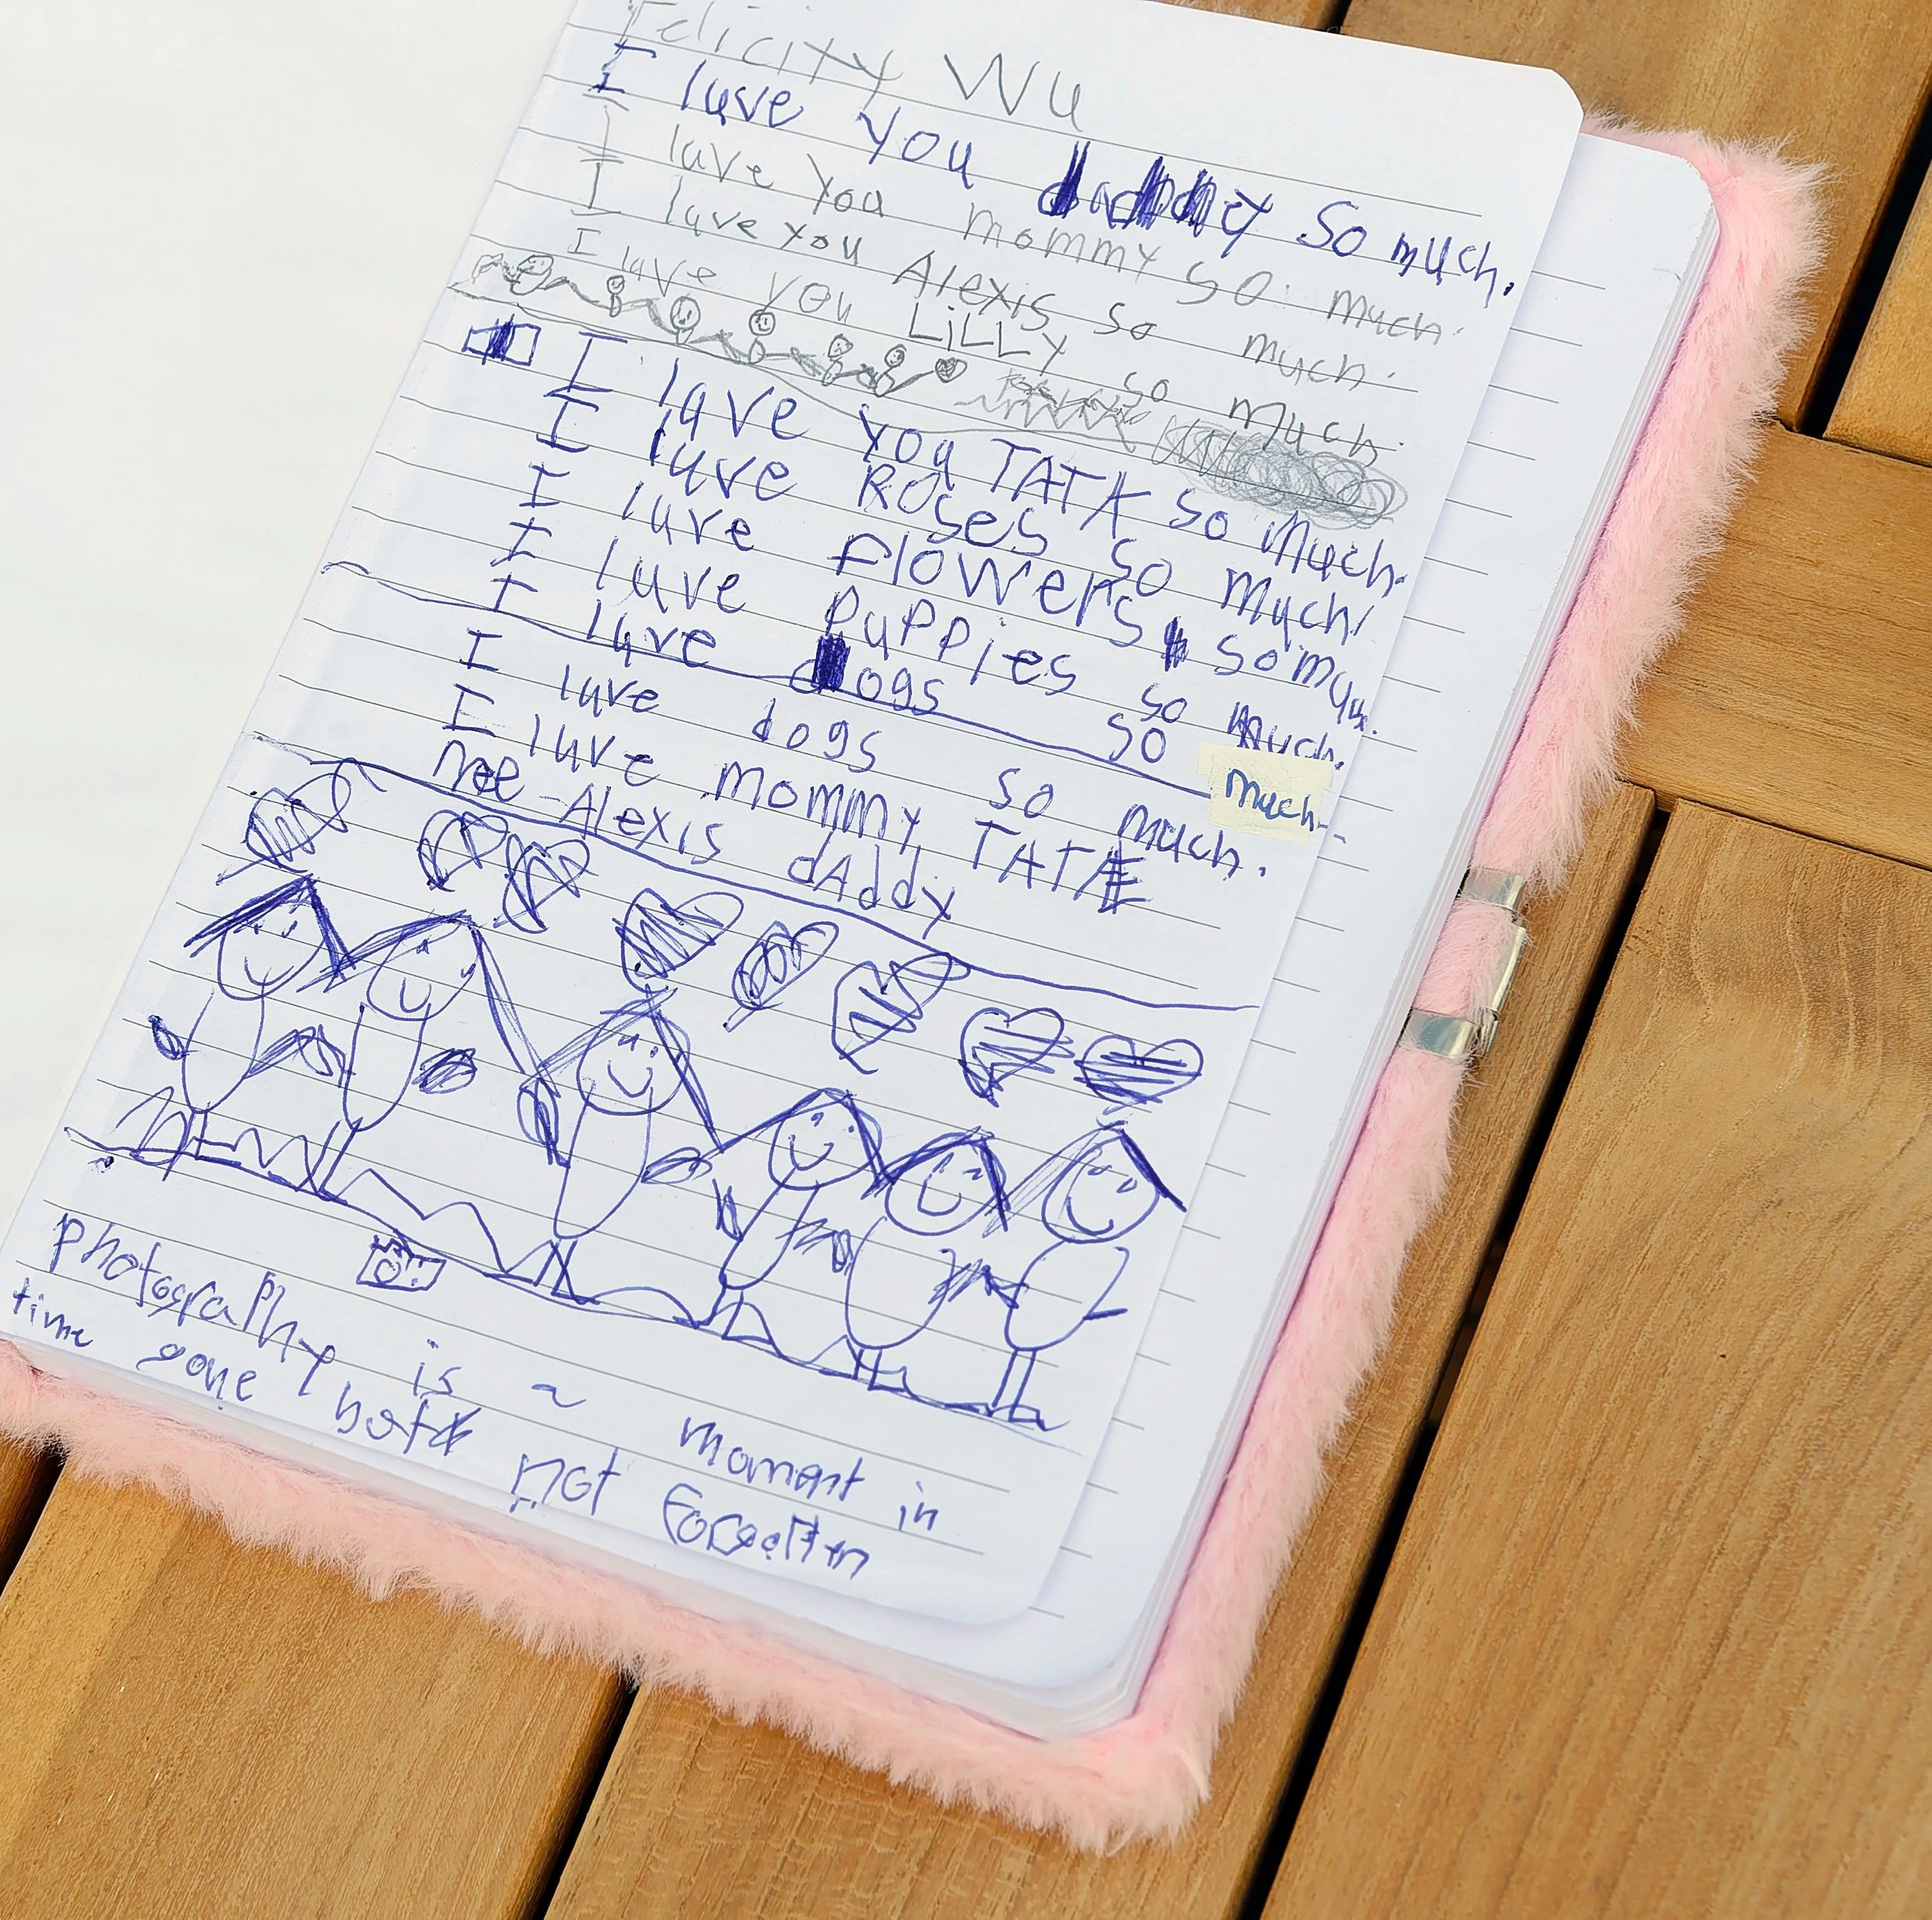 Felicity Wu
I luve you daddy so much.
I luve you mommy so much.
I luve you Alexis so much.
I luve you LiLLy so much.
I luve you TATA so much.
I luve Roses so much.
I luve flowers so much.
I luve puppies so much.
I luve dogs so much.
I luve dogs so much.
I luve mommy TATA
me Alexis dAddy
photography is a moment in
time gone but not Forgotten